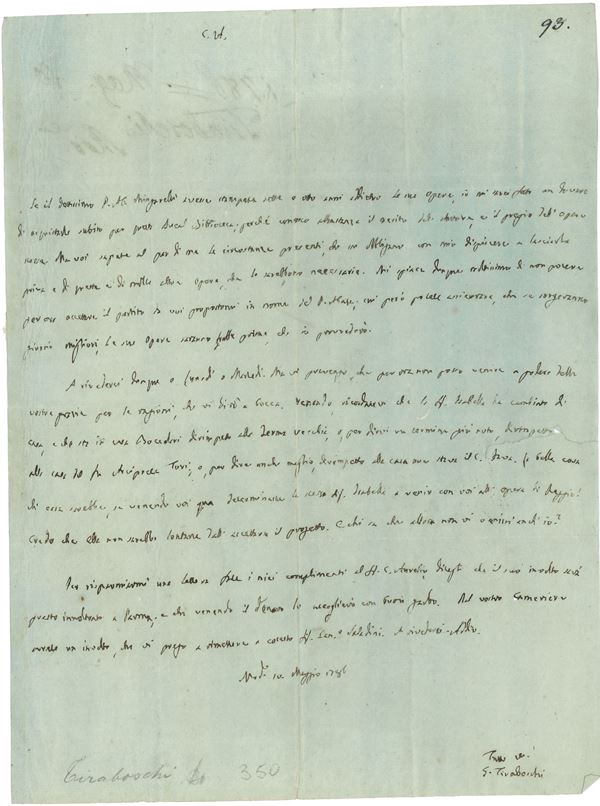 93.
C. A.
Se il dottissimo P. Ab. Mingarelli avesse stampata sette o otto anni addietro la sua opera, io mi sarei fatto un dovere
di acquistarla subito per questa Ducal Biblioteca, perché conosco abbastanza il merito dell' autore, e il pregio dell' opera
stessa. Ma voi sapete al par di me le circostanze presenti, che mi obbligano con mio dispiacere a lasciarla
priva e di questa e di molte altre opere, che le sarebbono necessarie. Mi spiace dunque moltissimo di non potere
per ora accettare il partito da voi propostomi in nome del P. Abate, cui però potete assicurare, che se sorgeranno
giorni migliori, la sua opera sarà una delle prime, che io provvederò.
A rivederci dunque o Lunedì o Martedì. Ma vi prevengo, che per ora non posso venire a godere della
vostra grazia per le ragioni, che vi dirò a bocca. Venendo, ricordatevi che la Isabella ha cambiato di
casa, e che sta in casa Boccaderi dirimpetto alle vecchie, o per dirvi un termine più noto, dirimpetto
alla casa del fu Arciprete Tori, o, per dire anche meglio, dirimpetto alla casa ove stava il C. Fava. La bella cosa
che cosa sarebbe, se venendo voi qua determinaste la stessa Isabella a venir con voi all' opera di Reggio!
Credo che ella non sarebbe lontana dall' accettare il progetto. E chi sa che allora non vi venissi anch' io?
Per risparmiarmi una lettera fate i miei complimenti al C. Aurelio, ditegli che il suo involto sarà
presto inoltrato a Parma, e che venendo il denaro lo accoglierò con buon garbo. Dal vostro Cameriere
avrete un involto, che vi prego a trasmettere a cotesto Saladini. A rivederci. Addio.
Mod.ª Maggio 1786
Tutto v.º
G. Tiraboschi
Tiraboschi 350